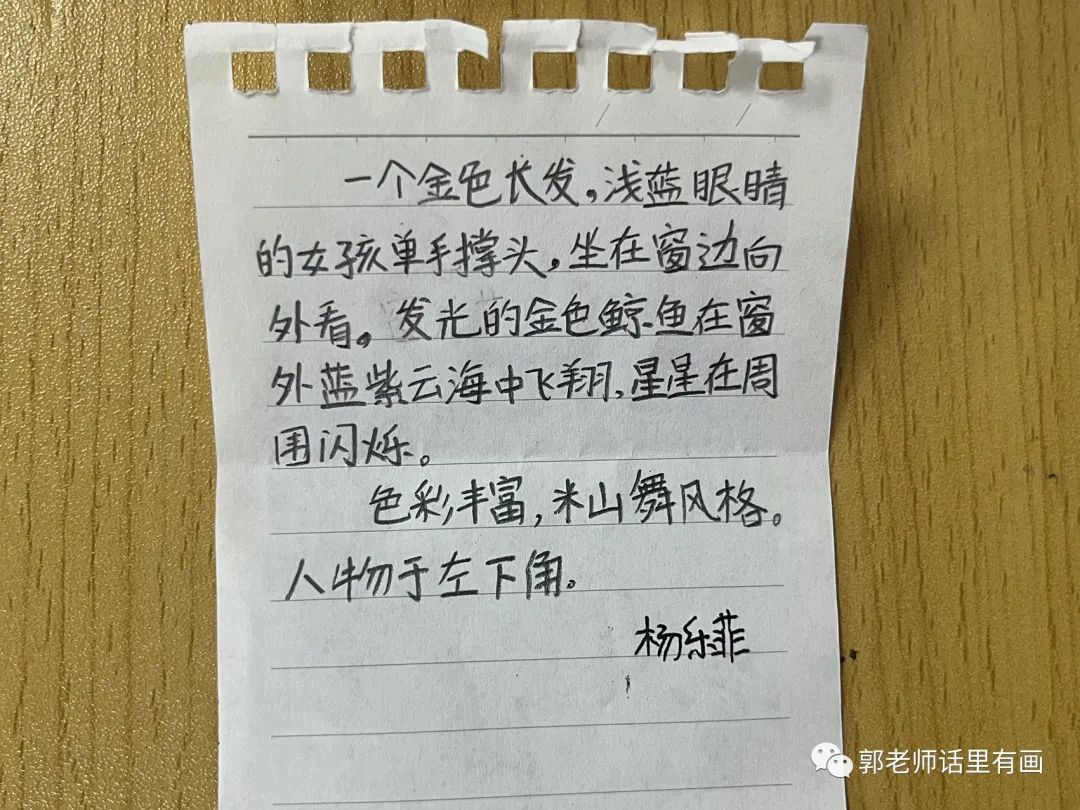 一个金色长发，浅蓝眼睛
的女孩单手撑头，坐在窗边向
外看。发光的金色鲸鱼在窗
外蓝紫云海中飞翔，星星在周
围闪烁。
色彩丰富，米山舞风格。
人物于左下角。
杨乐菲
郭老师话里有画